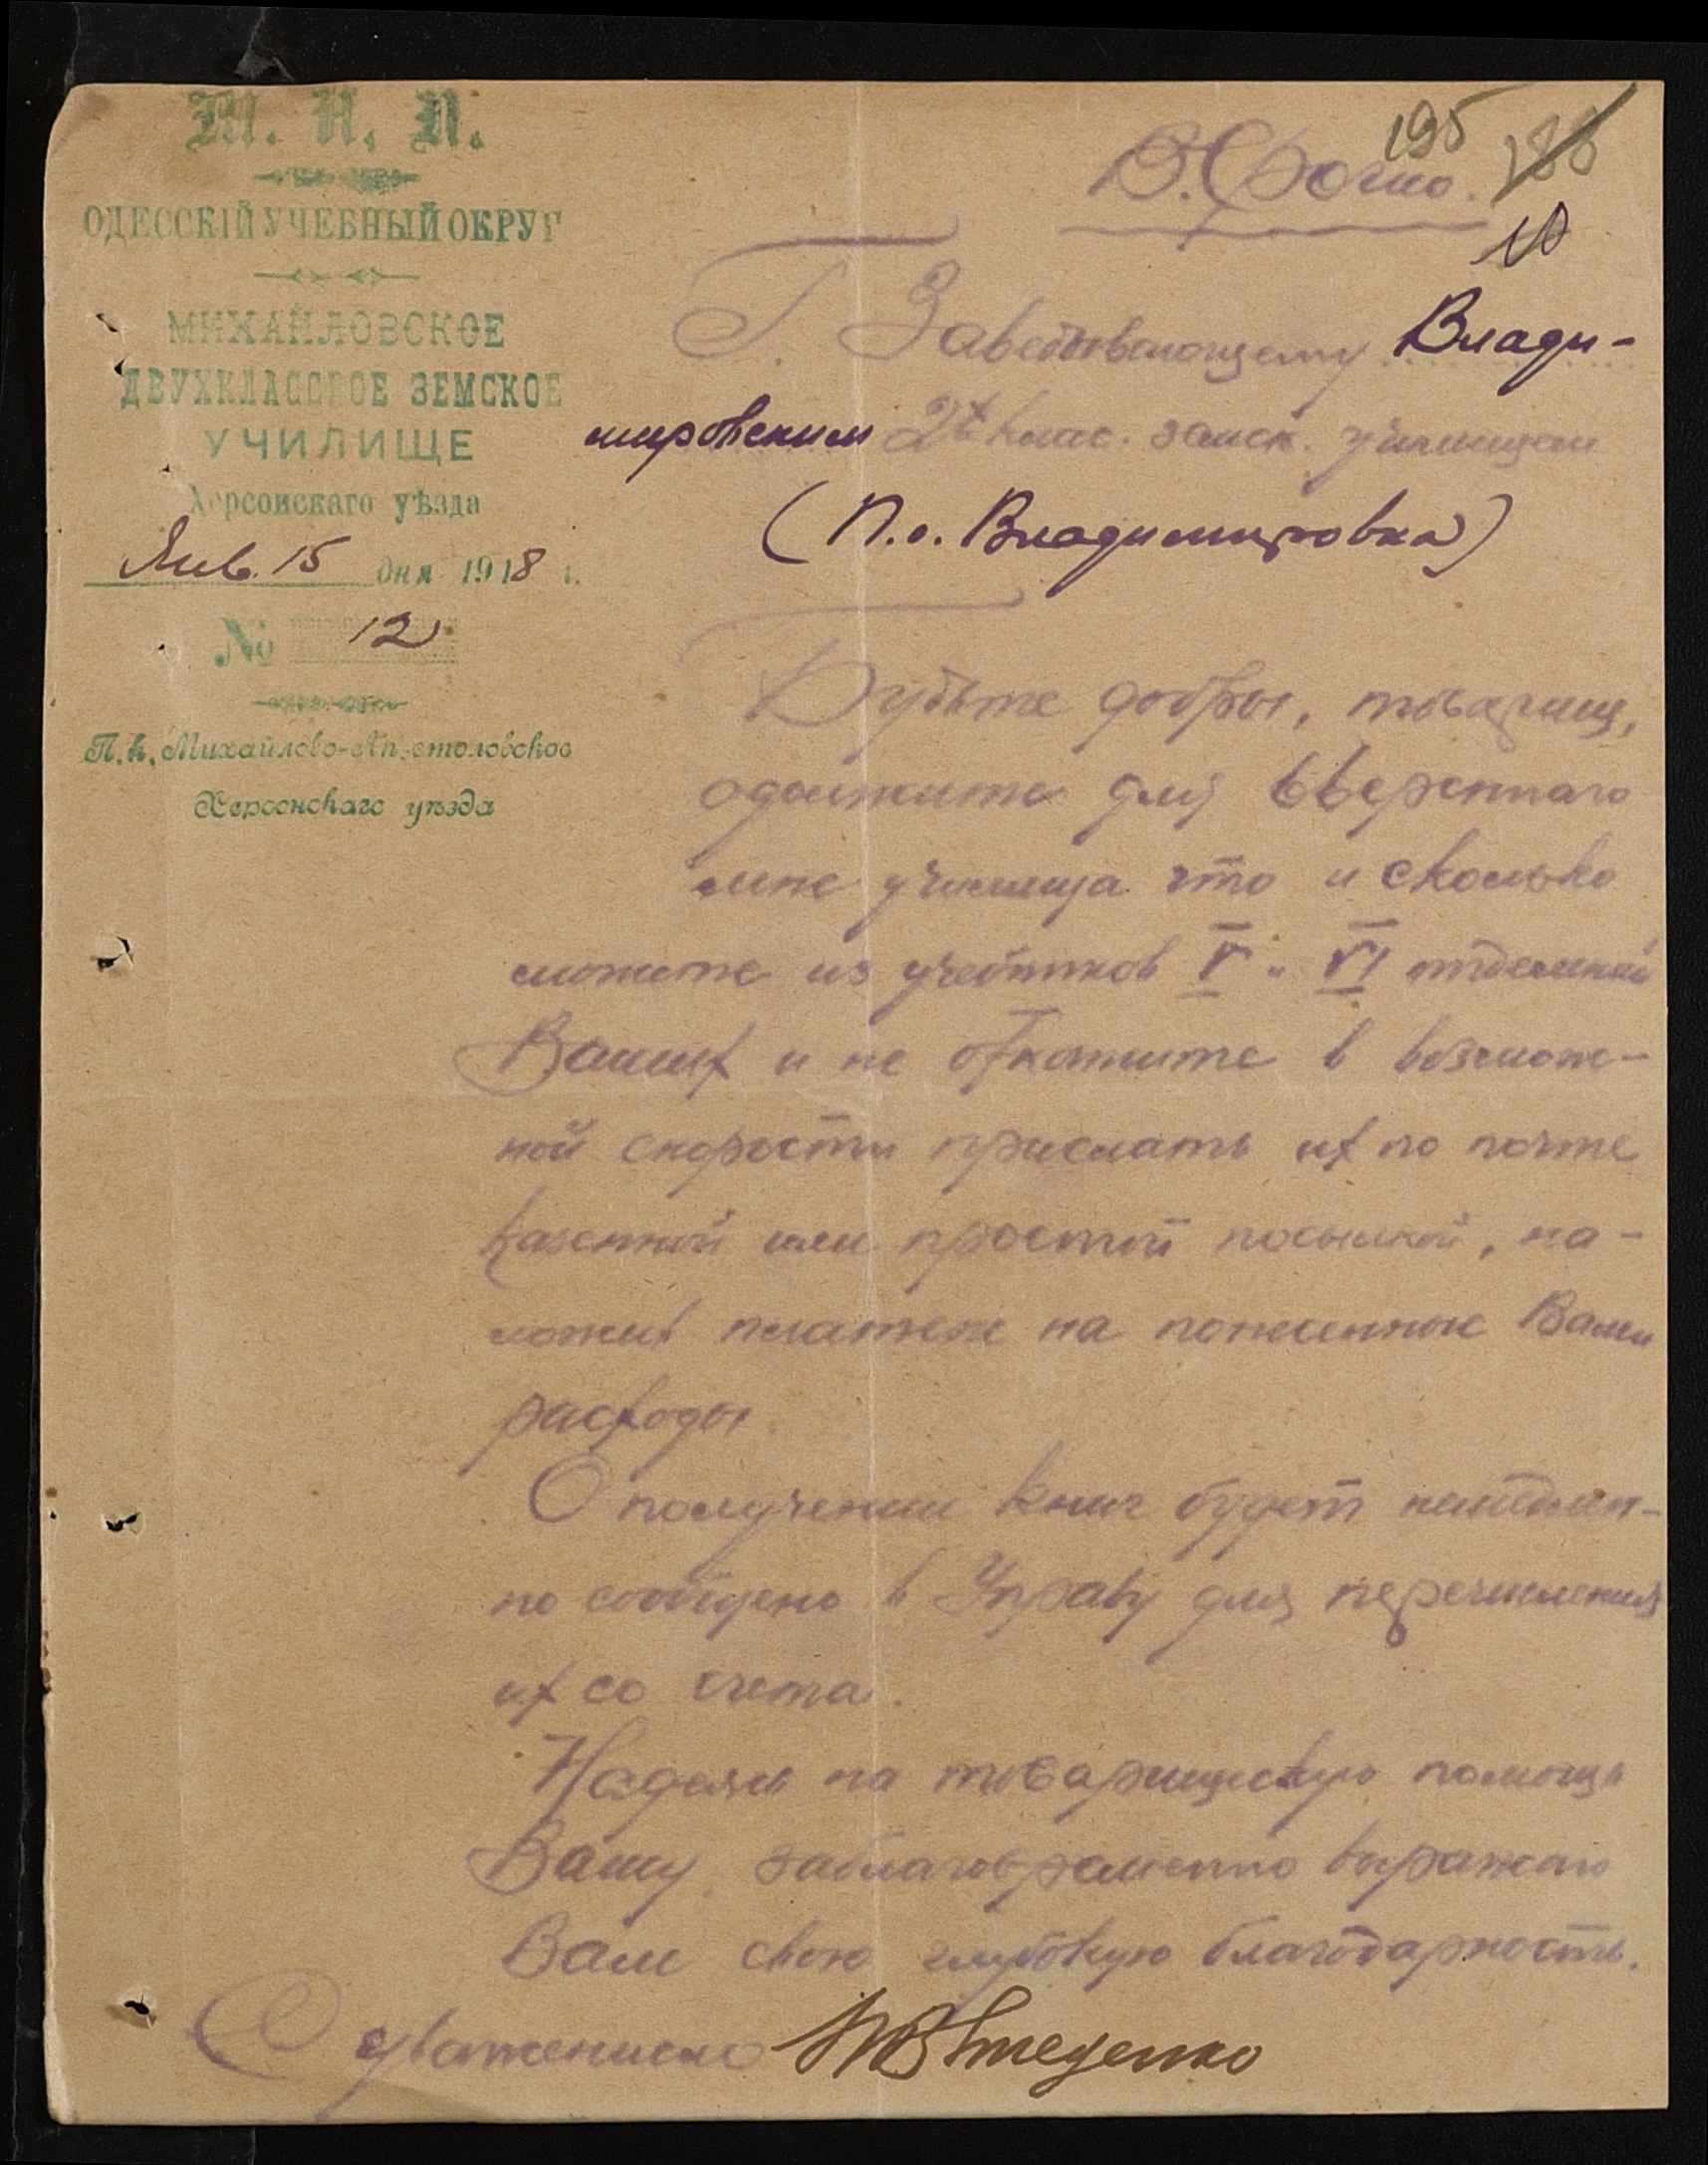 М. Н. П.
ОДЕССКІЙ УЧЕБНЫЙ ОКРУГ
МИХАЙЛОВСКОЕ
ДВУХКЛАССНОЕ ЗЕМСКОЕ
УЧИЛИЩЕ
Херсонскаго уѣзда
Янв. 15 дня 1918 г.
№ 12
П. к. Михайлово-Апостоловское
Херсонскаго уѣзда
195 188
В. Срочно.
Г. Заведывающему Влади-
мировским 2х клас. земск. училищем
(П. о. Владимировка)
Будьте добры, товарищ,
одолжите для вверенного
мне училища что и сколько
можете из учебников V и VI отделений
Ваших и не откажите в возмож-
ной скорости прислать их по почте
казенной или простой посылкой, на-
ложив платеж на понесенные Вами
расходы.
О получении книг будет немедлен-
но сообщено в Управу для перечисления
их со счета.
Надеясь на товарищескую помощь
Вашу, заблаговременно выражаю
Вам свою глубокую благодарность.
С уважением